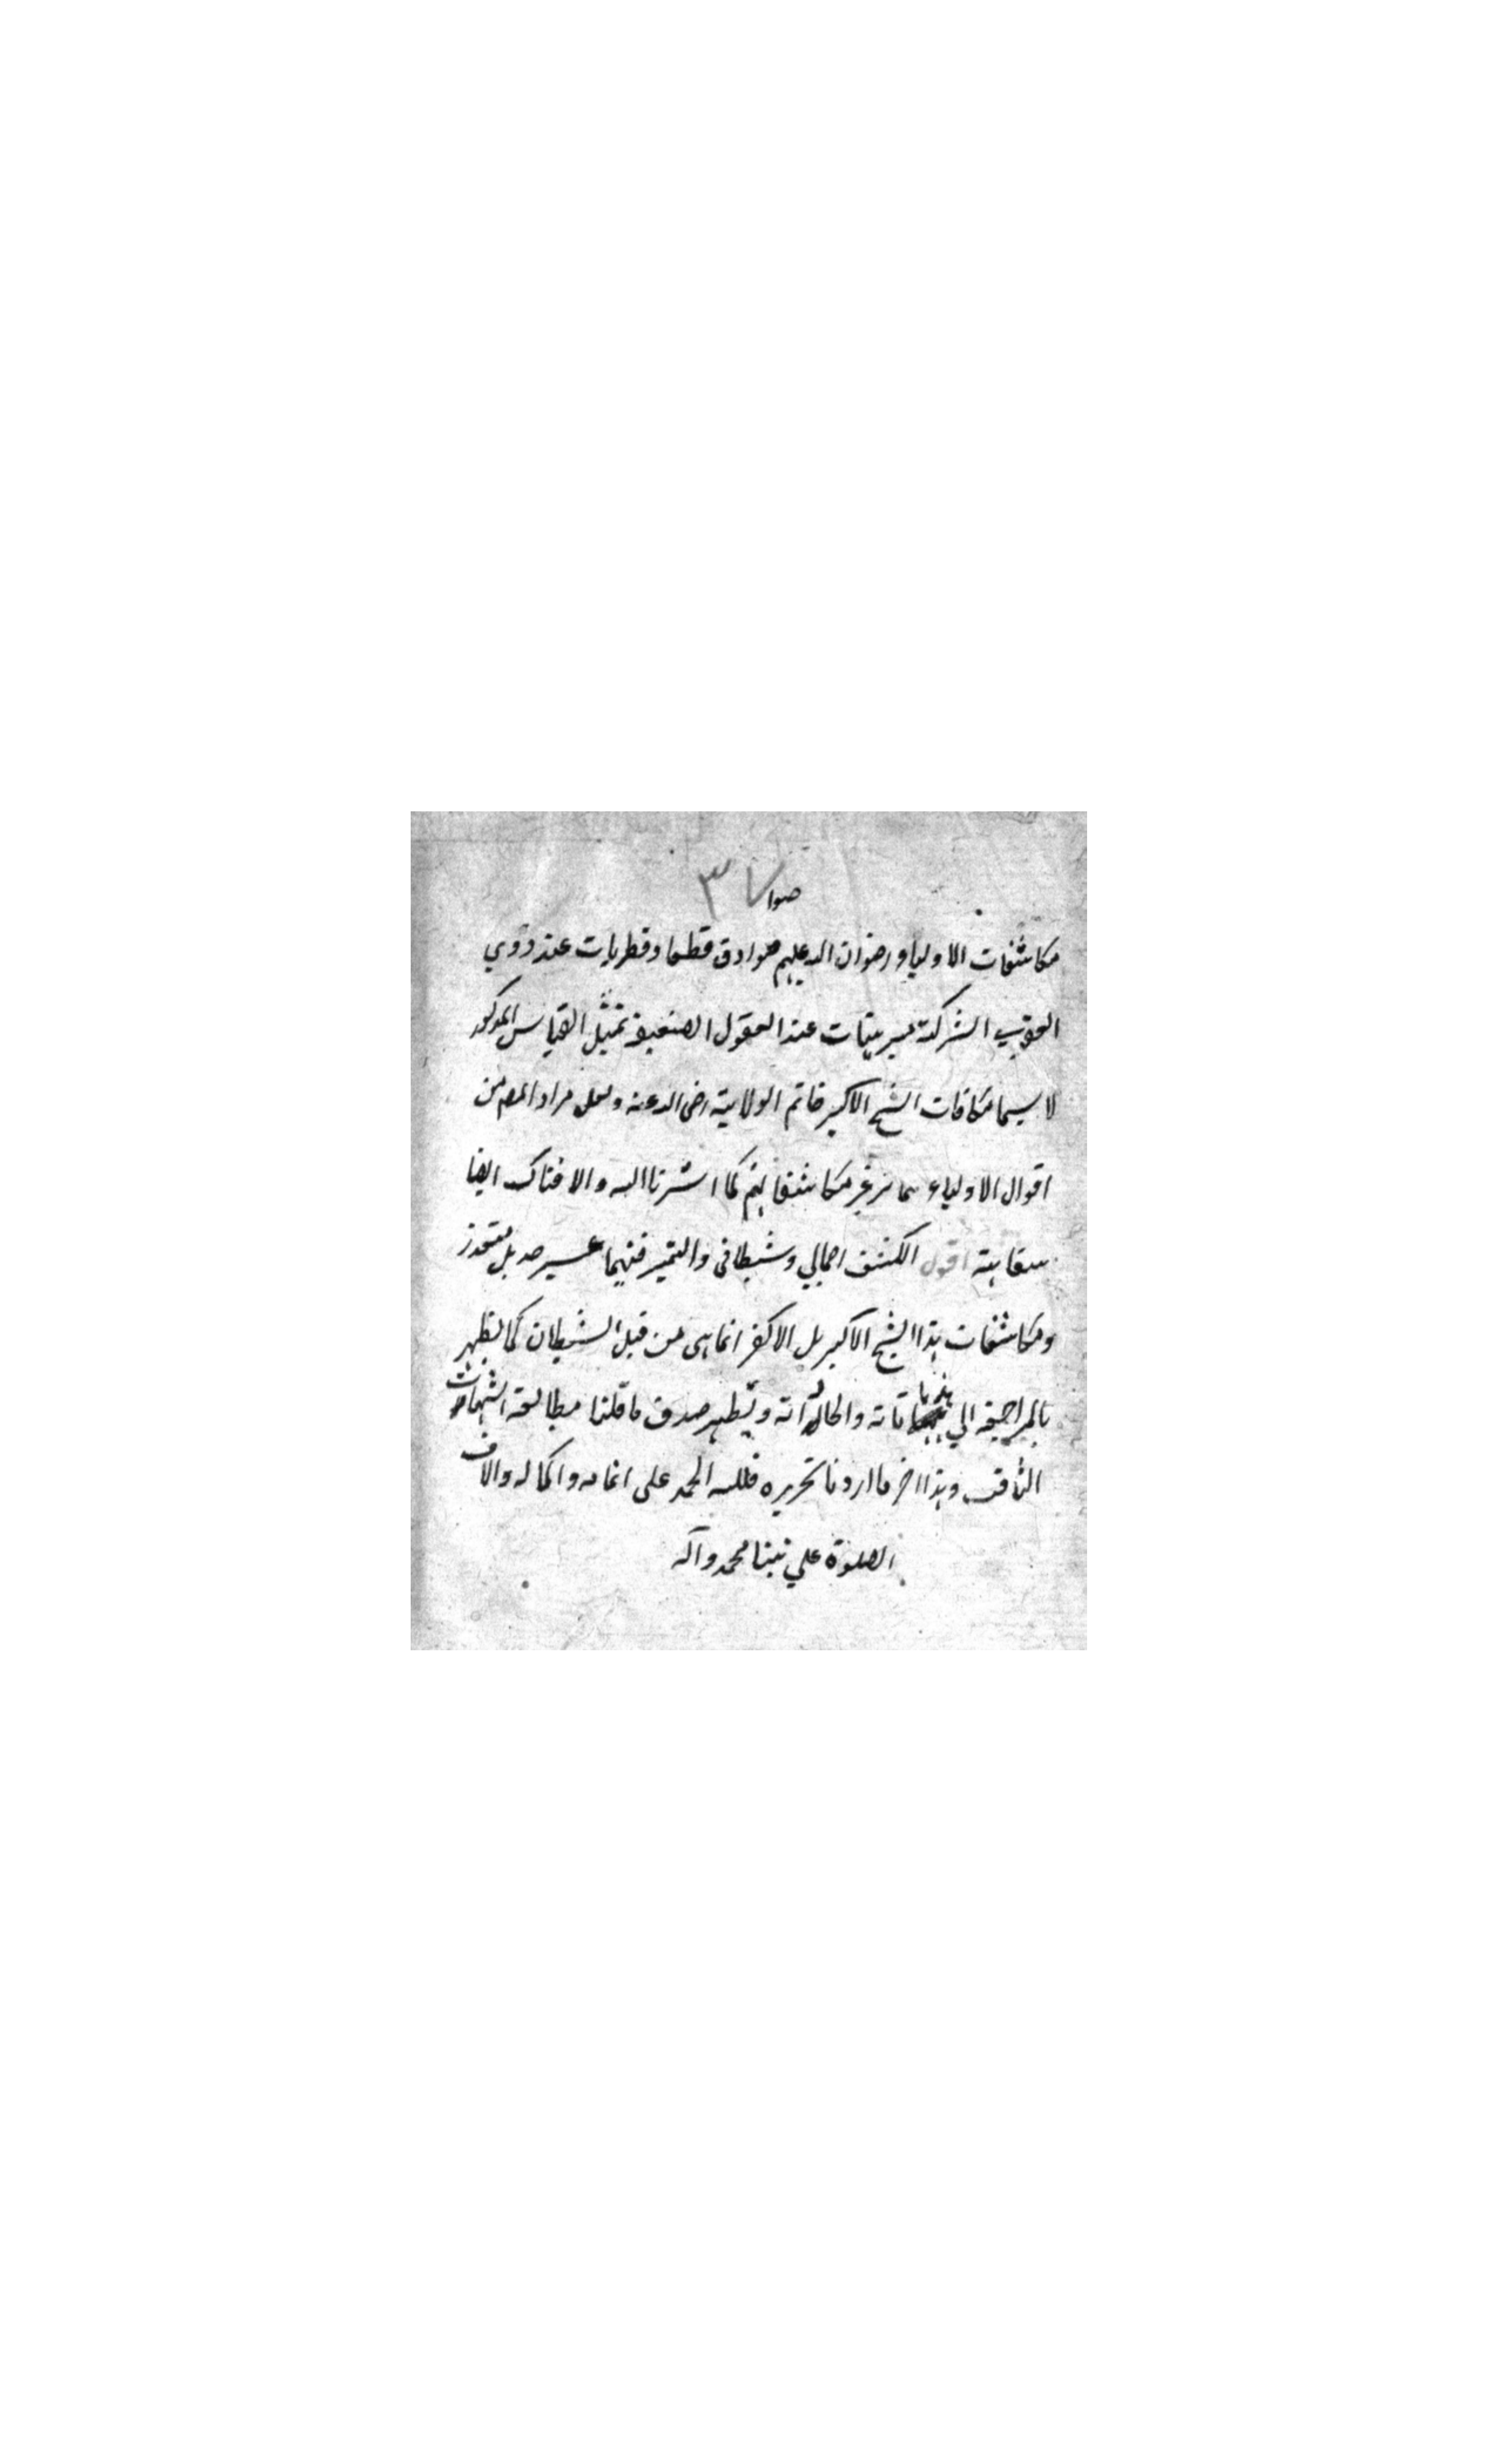 صوا ٧٣
مكاشفات الاولياء رضوان الله عليهم صوادق قطعا وفطريات عند ذوي
العقول عند العقول الضعيفة تمثيل القياس المذكور
لا سيما الشيخ الاكبر خاتم الولاية رضى الله عنه ولعل مراد المص من
اقوال الاولياء ما غير مكاشفاتهم كما اشرنا اليه والا فذاك ايضا
سفاهة اقول الكشف وشيطاني والتميز فيهما عسير بل متعذر
ومكاشفات هذا الشيخ الاكبر بل الاكفر انما هى من قبل الشيطان كما يظهر
بالمراجعة الي هذياناته ويظهر صدق ما قلنا مطالعة الشهاب
الثاقب وهذا اخر ما اردنا تحريره فلله الحمد على اتمامه واكماله
الصلوة علي نبينا محمد وآله